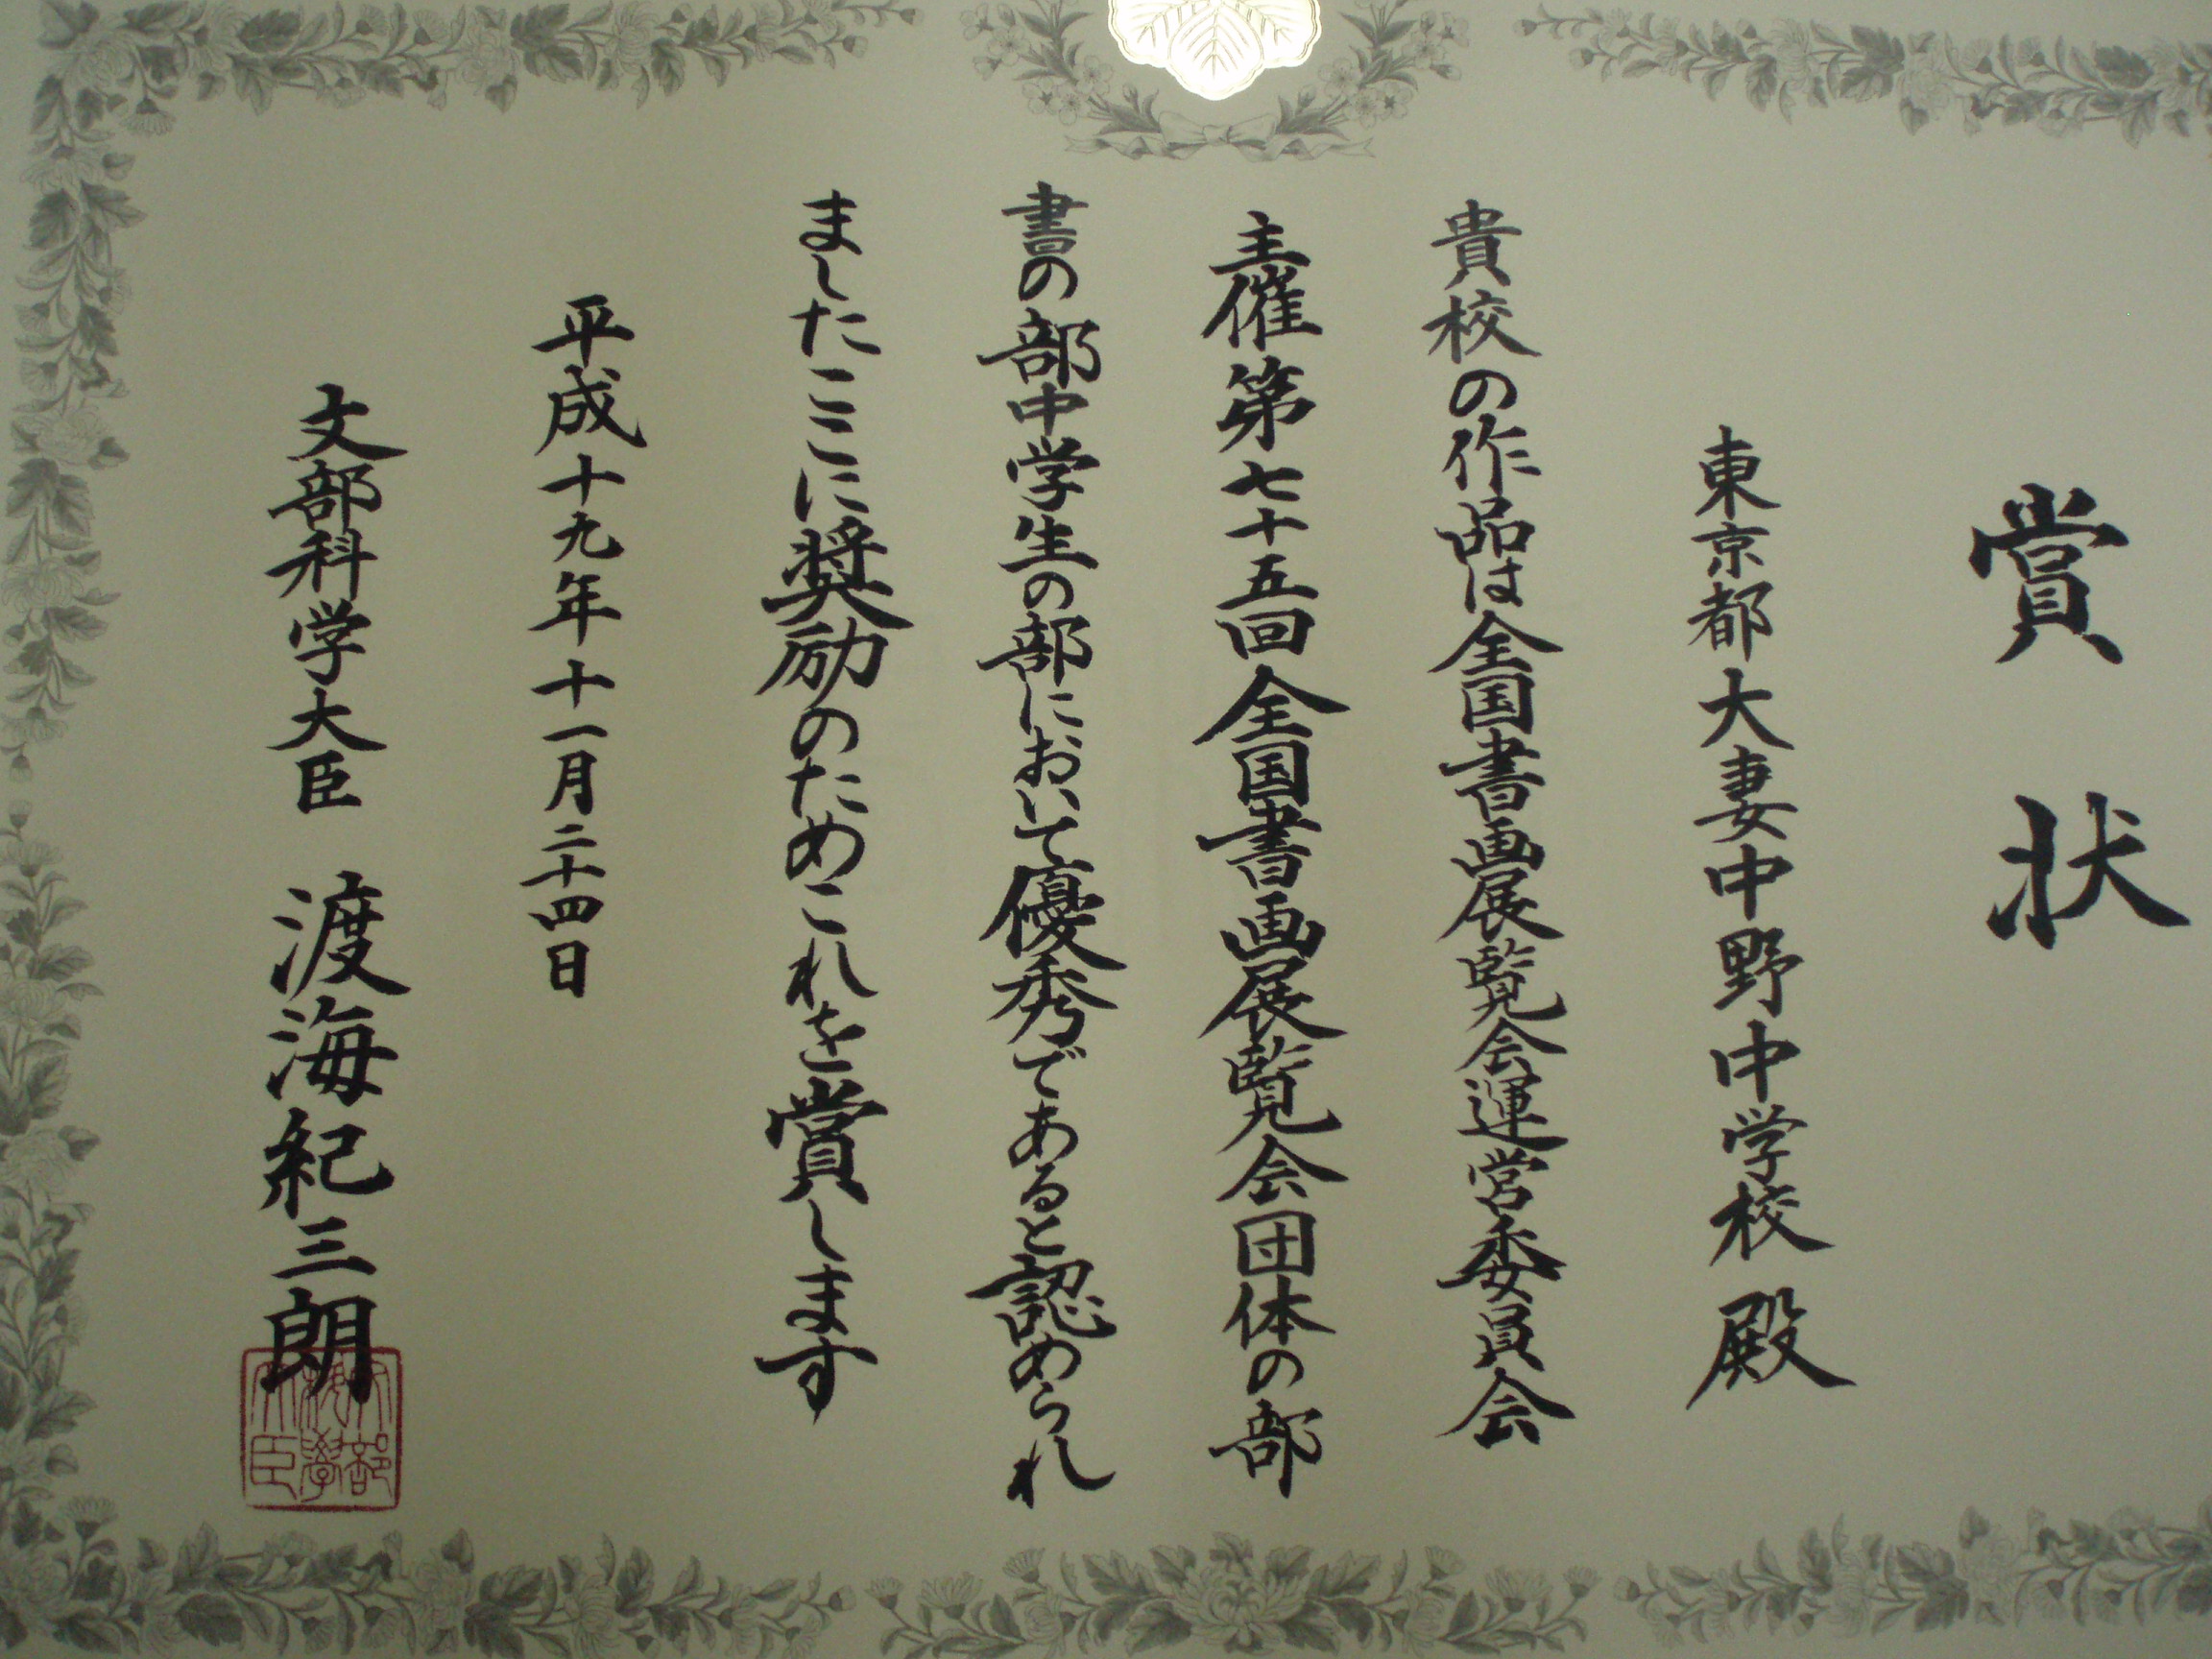 賞状
東京都大妻中野中学校殿
貴校の作品は全国書画展覧会運営委員会
主催第七十五回全国書画展覧会団体の部
書の部中学生の部において優秀であると認められ
ましたここに奨励のためこれを賞します
平成十九年十一月二十四日
文部科学大臣 渡海紀三朗
文部科学大臣